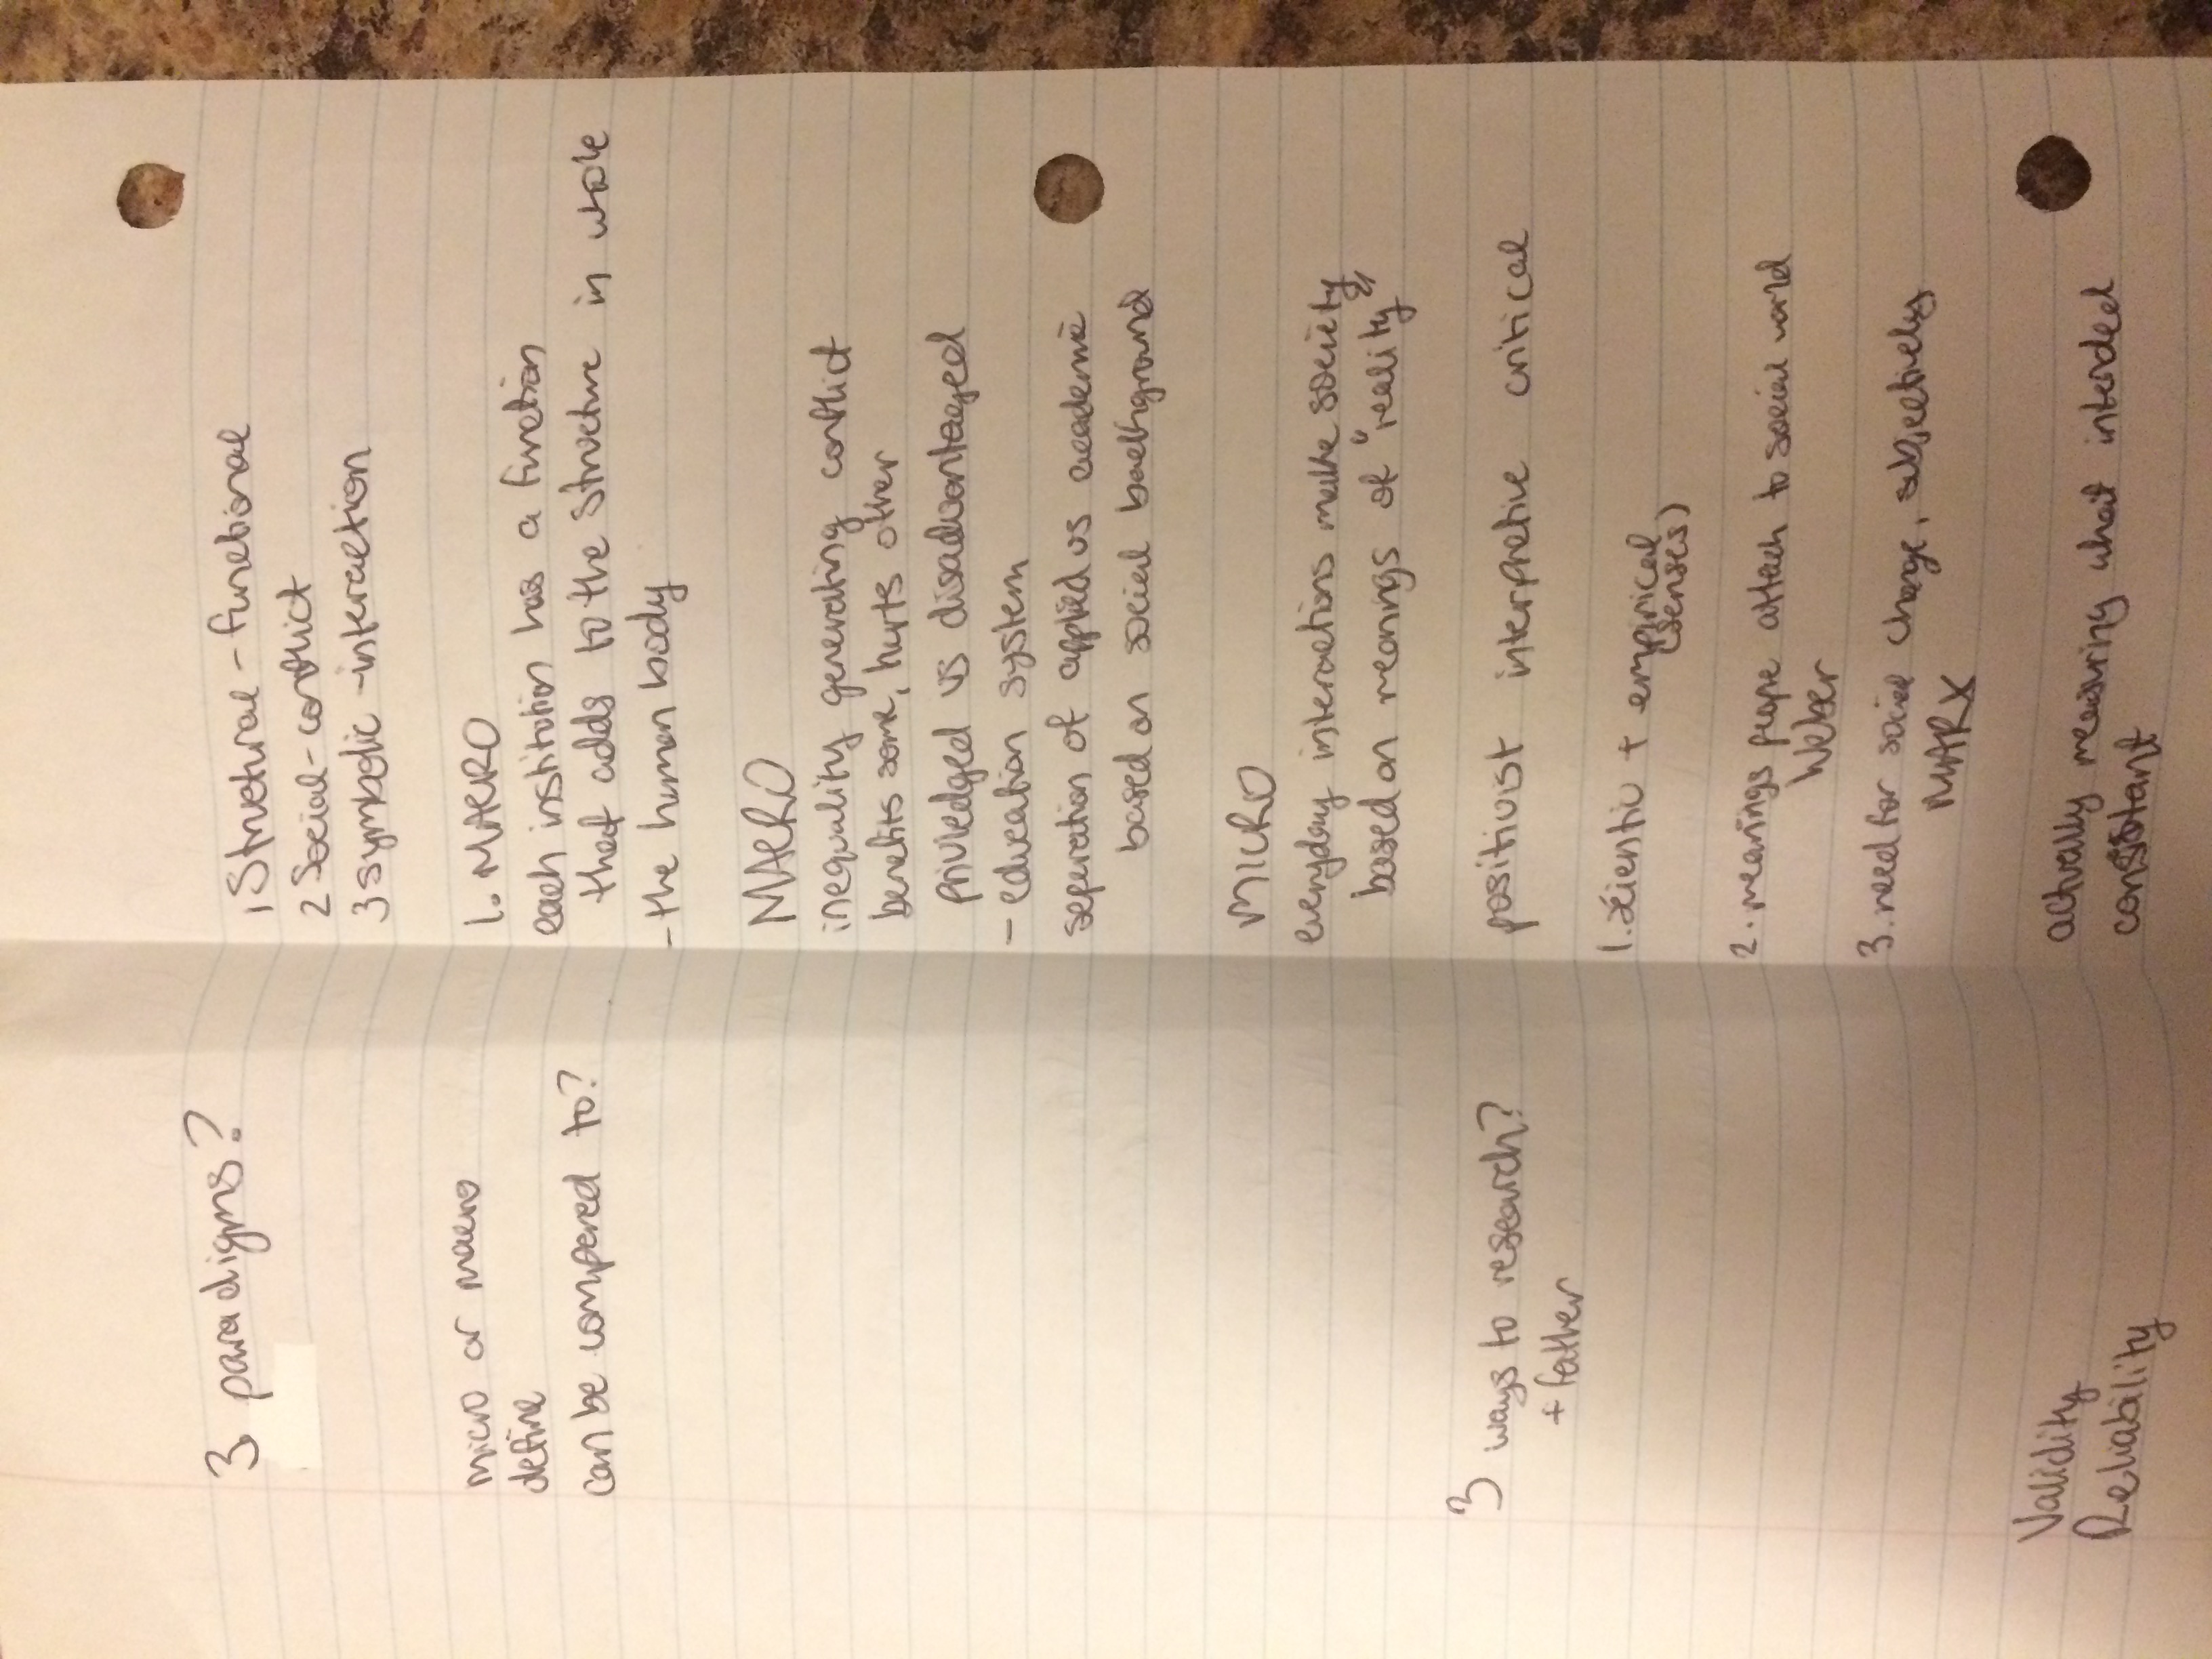 3 paradigms?
1 Structural - functional
2 Social - conflict
3 symbolic - interaction
micro or macro
define
can be compared to?
1. MACRO
each institution has a function
that adds to the structure in whole
- the human body
MACRO
inequality generating conflict
benefits some, hurts other
priviledged vs disadvantaged
- education system
seperation of applied vs academic
based on social background
MICRO
everyday interactions make society
based on meanings of "reality"
3 ways to research?
+ father
positivist interpretive critical
1. Scientific + empirical
(senses)
2. meanings people attach to social world
Weber
3. need for social change, subjectively
MARX
Validity
Reliability
actually measuring what intended
consistant